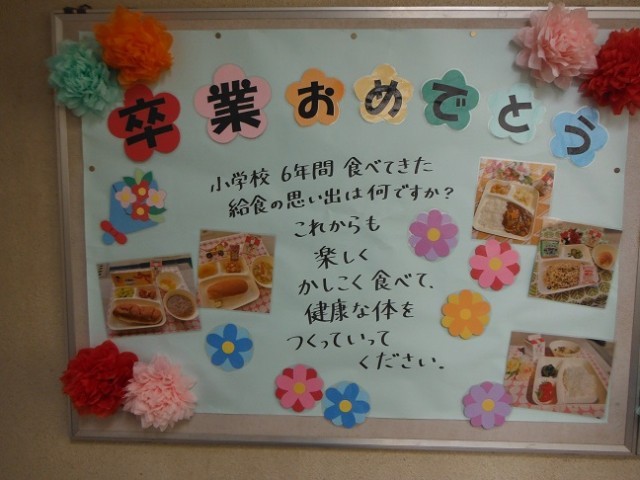 卒業おめでとう
小学校 6年間 食べてきた
給食の思い出は何ですか?
これからも
楽しく
かしこく食べて、
健康な体を
つくっていって
ください。